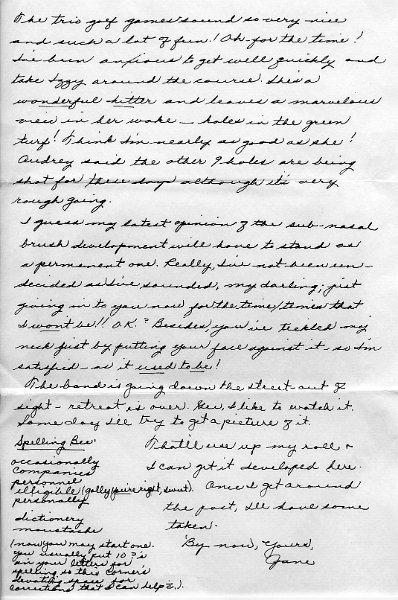 The trio golf games sound so very nice
and such a lot of fun! Oh - for the time!
I've been anxious to get well quickly and
take Izzy around the course. She's a
wonderful hitter and leaves a marvelous
view in her wake - holes in the green
turf! Think I'm nearly as good as she!
Audrey said the other 9 holes are being
shot for these days although it's very
rough going.
I guess my latest opinion of the sub-nasal
brush development will have to stand as
a permanent one. Really, I've not been un-
decided as I've sounded, my darling; just
giving in to you now for the time, times that
I won't be!! O.K.? Besides, you've tickled my
neck just by putting your face against it - so I'm
satisfied - as it used to be!
The band is going down the street out of
sight - retreat is over. Gee, I like to watch it.
Some day I'll try to get a picture of it.
That'll use up my roll &
I can get it developed here.
Once I get around
the post, I'll have some
taken.
'By now, Yours,
Jane
Spelling Bee
occasionally
companies
personnel
illegible (golly you're right, sweet).
personally
dictionery
moustache
(now you may start one.
you usually put 10 ?'s
in your letters for
spelling so this corner's
devoting space for
corrections that I can help is.)